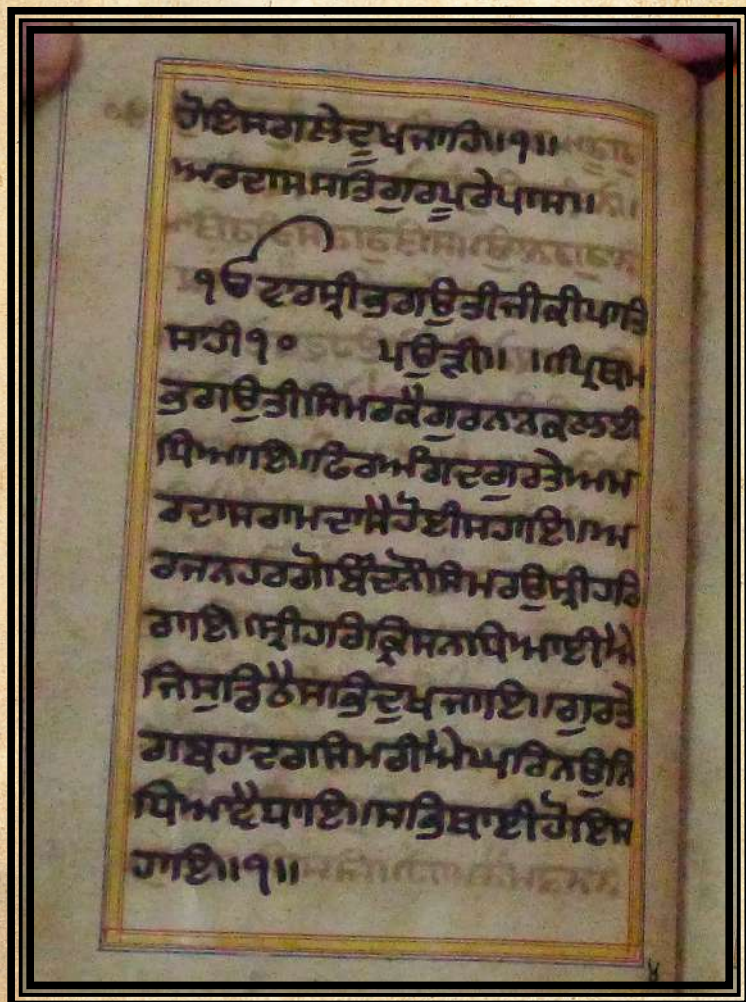 ਹੋਇਸਗਲੇਦੂਖਜਾਹਿ॥੧॥
ਅਰਦਾਸਸਤਿਗੁਰਪੂਰੇਪਾਸ॥
ੴਵਾਰਸ੍ਰੀਭਗਉਤੀਜੀਕੀਪਾਤਿ
ਸਾਹੀ੧੦ ਪਉੜੀ॥ ॥ਪ੍ਰਿਥਮ
ਭਗਉਤੀਸਿਮਰਕੈਗੁਰਨਾਨਕਲਈ
ਧਿਆਇ॥ਫਿਰਅੰਗਦਗੁਰਤੇਅਮ
ਰਦਾਸਰਾਮਦਾਸੈਹੋਈਸਹਾਇ॥ਅ
ਰਜਨਹਰਗੋਬਿੰਦਨੋਸਿਮਰਉਸ੍ਰੀਹਰਿ
ਰਾਇ॥ਸ੍ਰੀਹਰਿਕ੍ਰਿਸਨਧਿਆਈਐ
ਜਿਸੁਡਿਠੈਸਭਿਦੁਖਜਾਇ॥ਗੁਰਤੇ
ਗਬਹਾਦਰਸਿਮਰੀਐਘਰਿਨਉਨਿ
ਧਿਆਵੈਧਾਇ॥ਸਭਿਥਾਈਹੋਇਸ
ਹਾਇ॥੧॥
੪